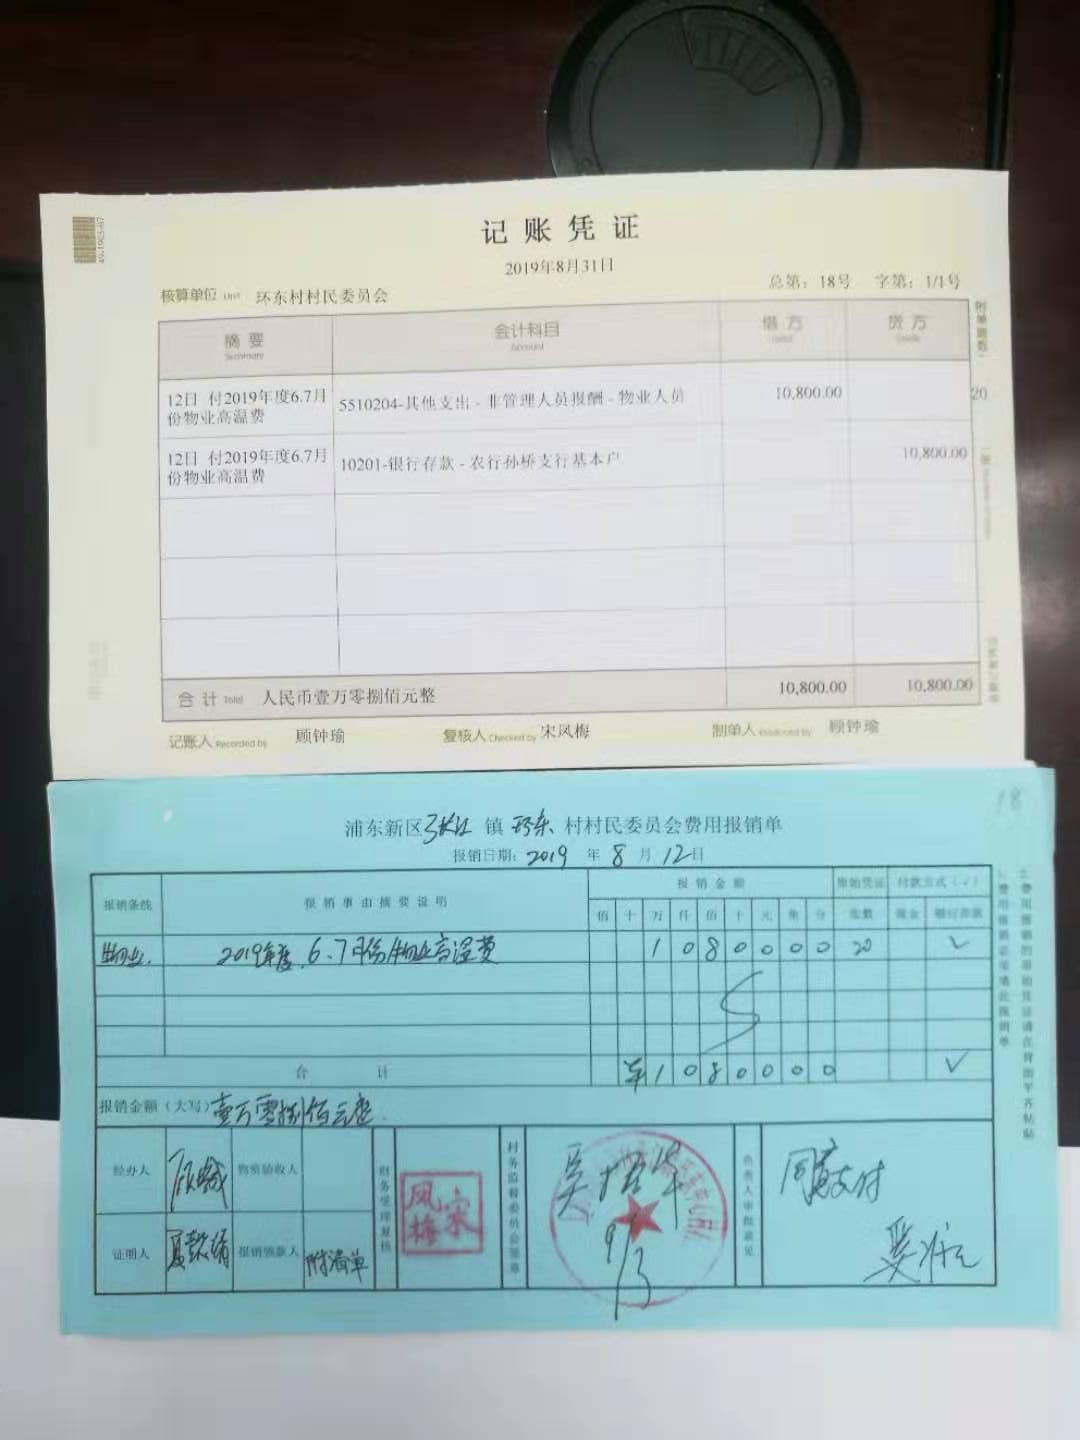 记账凭证
2019年8月31日
核算单位 Unit 环东村村民委员会 总第：18号 字第：1/1号
摘要 会计科目 借方 贷方
Summary Account Debit Credit
12日 付2019年度6.7月份物业高温费 5510204-其他支出 - 非管理人员报酬 - 物业人员 10,800.00
12日 付2019年度6.7月份物业高温费 10201-银行存款 - 农行孙桥支行基本户 10,800.00
合计 Total 人民币壹万零捌佰元整 10,800.00 10,800.00
记账人 Recorded by 顾钟瑜 复核人 Checked by 宋凤梅 制单人 Produced by 顾钟瑜
附单据数：
20
18
浦东新区张江镇环东村村民委员会费用报销单
报销日期：2019年8月12日
报销条线 报销事由摘要说明 报销金额 原始凭证 付款方式（√）
佰 十 万 仟 佰 十 元 角 分 张数 现金 银行存款
物业. 2019年度6、7月份物业高温费 1 0 8 0 0 0 0 20 √
合计 1 0 8 0 0 0 0 √
报销金额（大写）壹万零捌佰元整.
经办人 物资验收人
证明人 报销领款人 附清单
财务受理复核
宋凤梅
村务监督委员会签章
9/3
负责人审批意见
同意支付